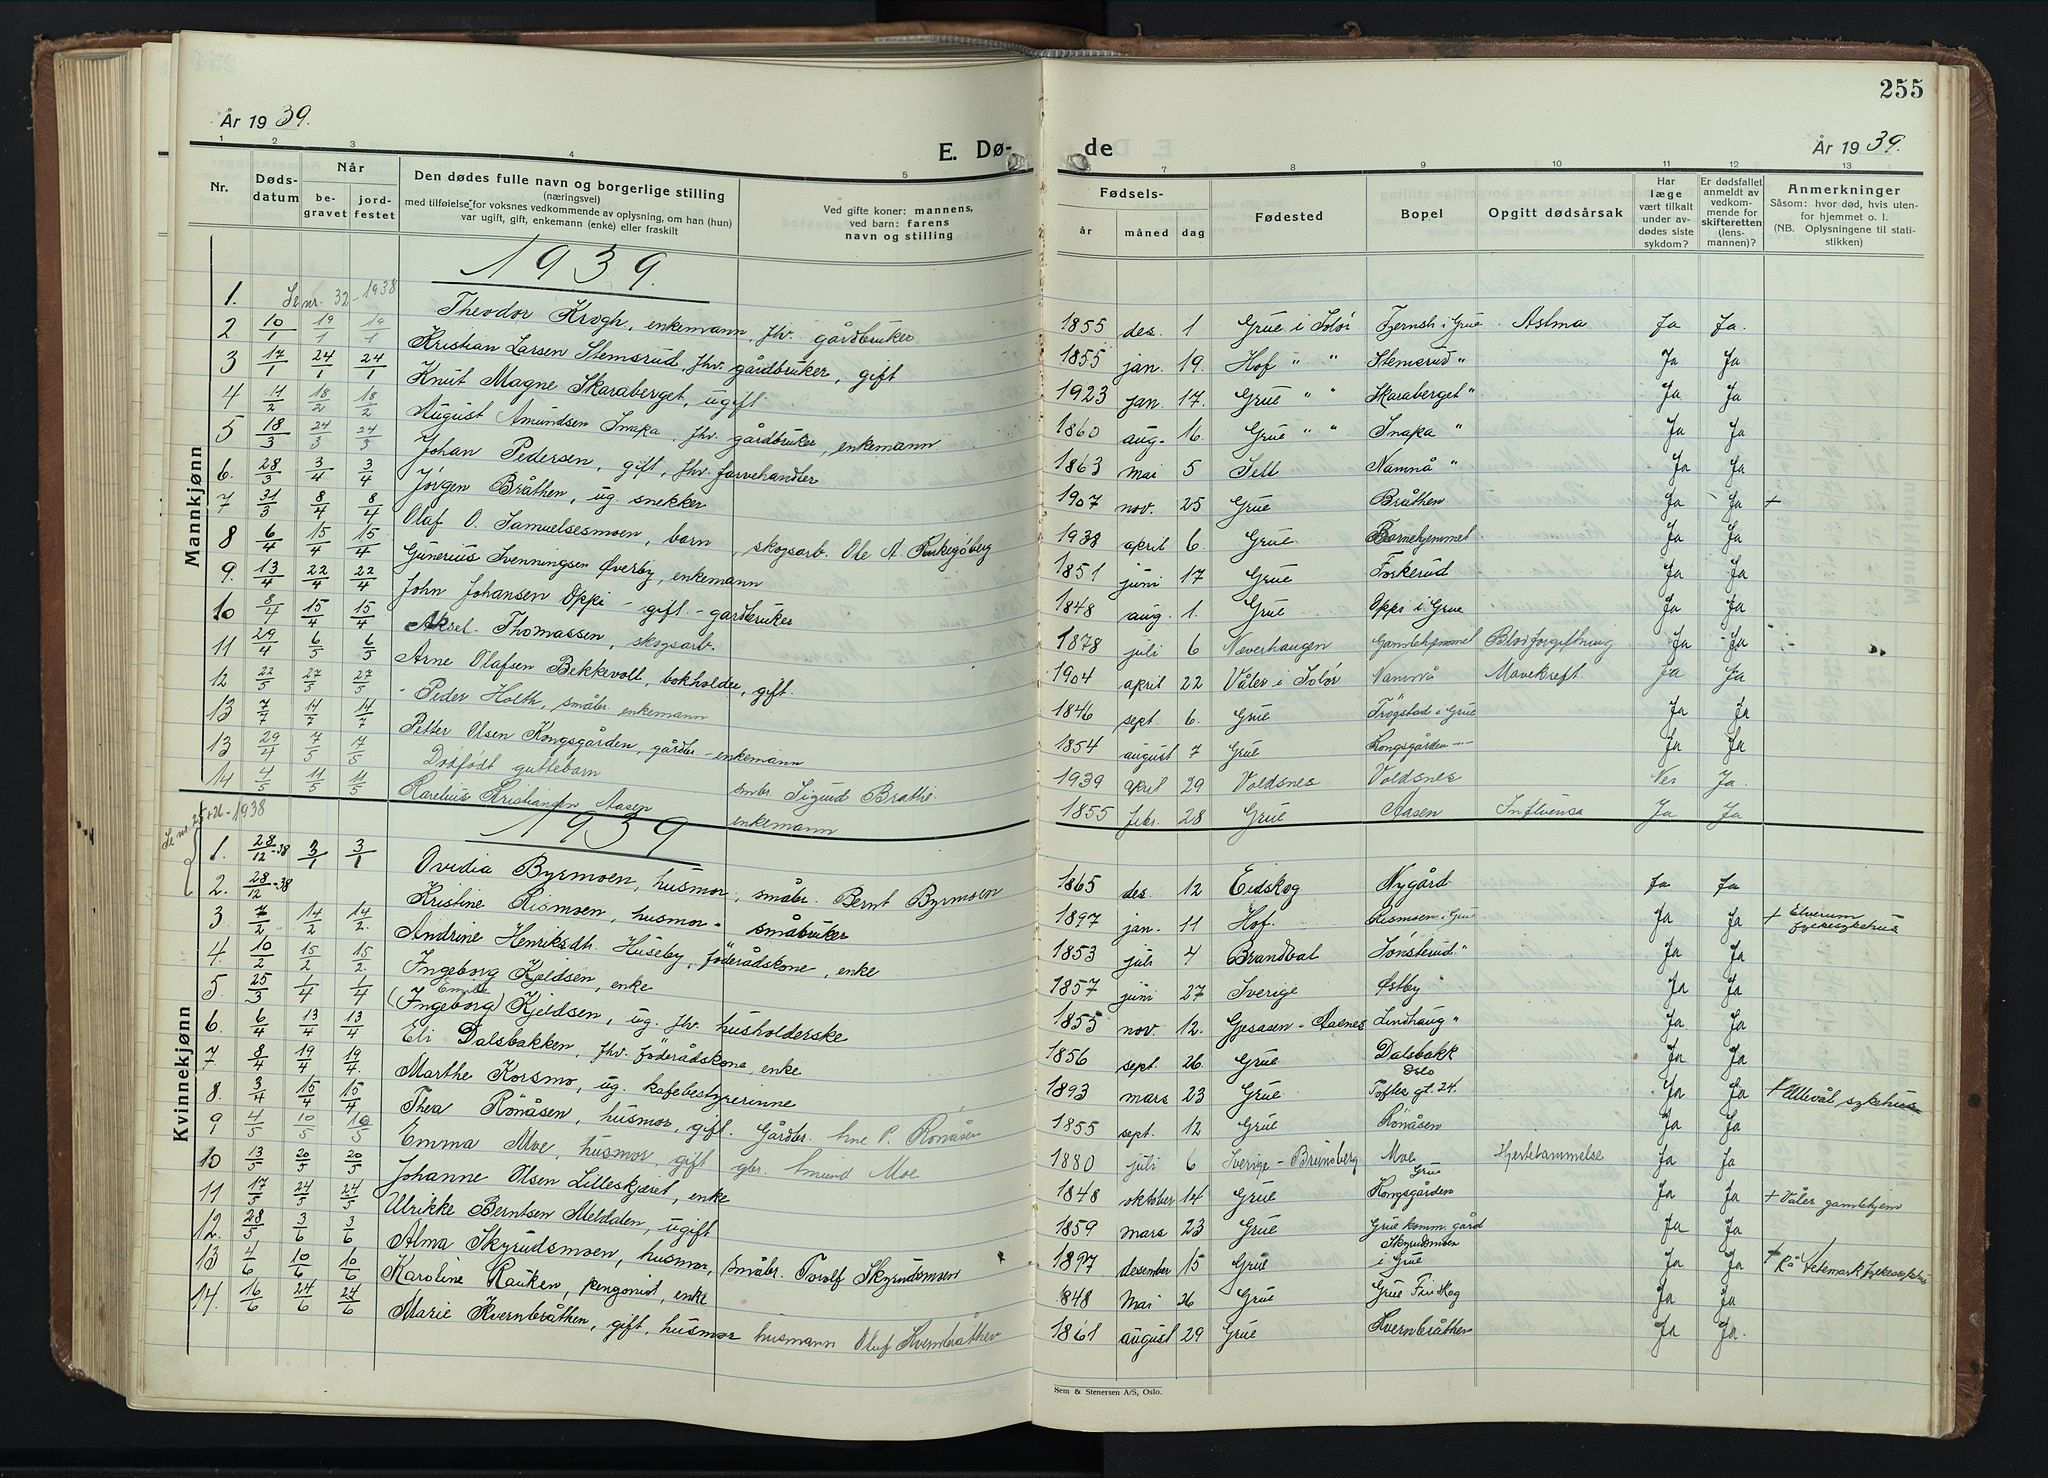 255
År 1939.
E. Dø-
de
År 1939.
1 2 3 4 5 6 7 8 9 10 11 12 13
Nr.
Døds-
datum
Når
be-
gravet
jord-
festet
Den dødes fulle navn og borgerlige stilling
(næringsvei)
med tilføielse for voksnes vedkommende av oplysning, om han (hun)
var ugift, gift, enkemann (enke) eller fraskilt
Ved gifte koner: mannens,
ved barn: farens
navn og stilling
Fødsels-
år måned dag
Fødested
Bopel
Opgitt dødsårsak
Har
læge
vært tilkalt
under av-
dødes siste
sykdom?
Er dødsfallet
anmeldt av
vedkom-
mende for
skifteretten
(lens-
mannen)?
Anmerkninger
Såsom: hvor død, hvis uten-
for hjemmet o. l.
(NB. Oplysningene til stati-
stikken)
Mannkjønn
1939.
1. Se nr. 32 - 1938
2 10/1 19/1 19/1 Theodor Krogh, enkemann, fhv. gårdbruker 1855 des. 1 Grue i Solør Tjernsh. i Grue Astma Ja Ja.
3 17/1 24/1 24/1 Kristian Larsen Stemsrud, fhv. gårdbruker, gift 1855 jan. 19. Hof " " Stemsrud " Ja Ja
4 11/2 18/2 18/2 Knut Magne Skaraberget, ugift 1923 jan. 17. Grue " Skaraberget " Ja Ja
5 18/3 24/3 24/3 August Amundsen Snapa, fhv. gårdbruker, enkemann 1860 aug. 16. Grue " " Snapa " Ja Ja
6. 28/3 3/4 3/4 Johan Pedersen, gift, fhv. farvehandler 1863 mai 5 Sell Namnå " Ja Ja
7 31/3 8/4 8/4 Jörgen Bråthen, ug. snekker 1907 nov. 25 Grue Bråthen Ja Ja +
8 6/4 15/4 15/4 Olaf O. Samuelsesmoen, barn, skogsarb. Ole A. 1938 april 6. Grue. Barnehjemmet Ja Ja
9. 13/4 22/4 22/4 Gunerius Svenningsen Øverby, enkemann 1851 juni 17 Grue Torkerud Ja Ja
10 8/4 15/4 15/4 John Johansen Oppi - gift - gardbruker 1848 aug. 1. Grue Oppi i Grue Ja Ja
11 29/4 6/5 6/5 Aksel Thomassen, skogsarb. 1878 juli 6 Næverhaugen Gamlehjemmet Blodforgiftning Ja Ja
12 22/5 27/5 27/5 Arne Olafsen Bekkevoll, bokholder, gift. 1904 april 22 Våler i Solør Namnå Mavekreft. Ja Ja
13 7/7 14/7 14/7 Peder Holth, småbr. enkemann 1846 sept. 6. Grue Frögstad i Grue Ja Ja
13 29/4 7/5 7/5 Petter Olsen Kongsgården, gårdbr. - enkemann 1854 august 7 Grue Kongsgården Ja Ja
14 4/5 11/5 11/5 Dødfødt guttebarn smbr. Sigurd Bråthe. 1939 april 29 Voldsnes Voldsnes Nei Ja.
Karelius Kristiansen Aasen enkemann 1855 febr. 28 Grue Aasen Influensa Ja Ja
Kvinnekjønn
Se nr. 25+26 - 1938
1939
1. 28/12-38 3/1 3/1 Ovidia Byrmoen, husmor, småbr. Bernt Byrmoen 1865 des. 12 Eidskog Nygård Ja Ja
2. 28/12-38 Kristine Rismoen, husmor - småbruker 1897 jan. 11 Hof. Rismoen i Grue Ja Ja + Elverum fylkessykehus
3. 7/2 14/2 14/2. Andrine Henriksdtr. Huseby, föderådskone, enke 1853 juli 4 Brandval Sönsterud " Ja Ja
4. 10/2 15/2 15/2. Ingeborg Kjeldsen, enke 1857 juni 27 Sverige Østby " Ja Ja
5. 25/3 1/4 1/4 (Ingeborg) Emilie Kjeldsen, ug. fhv. husholderske 1855 nov. 12. Gjesåsen i Aasnes Lindhaug " Ja Ja
6. 6/4 13/4 13/4 Eli Dalsbakken, fhv. föderådskone, enke 1856 sept. 26. Grue Dalsbakk Ja Ja
7 8/4 19/4 19/4. Marthe Korsmo, ug. kafebestyrerinne 1893 mars 23 Grue Oslo Toftes gt. 24. Ja Ja + Ullevål sykehus
8. 3/4 15/4 15/4 Thea Rönåsen, husmor, gift. Gårdbr. Arne P. Rönåsen 1855 sept. 12 Grue Rönåsen Ja Ja
9 4/5 10/5 10/5 Emma Moe, husmor, gift gbr. Amund Moe 1880 juli 6 Sverige - Brunsberg Moe Grue Hjertelammelse Ja Ja
10 13/5 20/5 20/5 Johanne Olsen Lilleskjæret, enke 1848 oktober 14 Grue Kongsgården Ja Ja + Våler gamlehjem
11 17/5 24/5 24/5 Ulrikke Berntsen Meldalen, ugift 1859 mars 23 Grue Grue komm. gård Ja Ja
12. 28/5 3/6 3/6 Alma Skyrudsmoen, husmor, småbr. Torolf Skyrudsmoen 1897 desember 15 Grue Skyrudsmoen i Grue Ja Ja + På Hedemark fylkessykehus
13 4/6 10/6 10/6 Karoline Rauken, pensjonist, enke 1848 Mai 26 Grue Grue Finskog Ja Ja
14. 16/6 24/6 24/6 Marie Kvernbråthen, gift, husmor husmann Oluf Kvernbråthen 1861 august 29 Grue Kvernbråthen Ja Ja.
Sem & Stenersen A/S, Oslo.